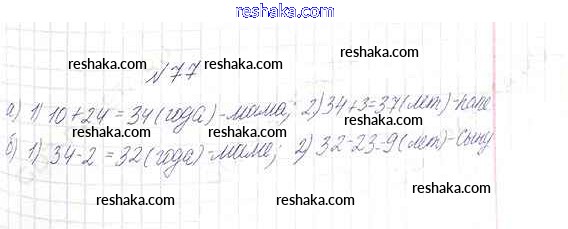 reshaka.com
reshaka.com
№77
reshaka.com reshaka.com reshaka.com
а) 1) 10+24=34(года)-мама; 2)34+3=37(лет)-папе
reshaka.com reshaka.com
б) 1) 34-2=32(года)-маме; 2) 32-23=9(лет)-сыну
reshaka.com reshaka.com
reshaka.com
reshaka.com